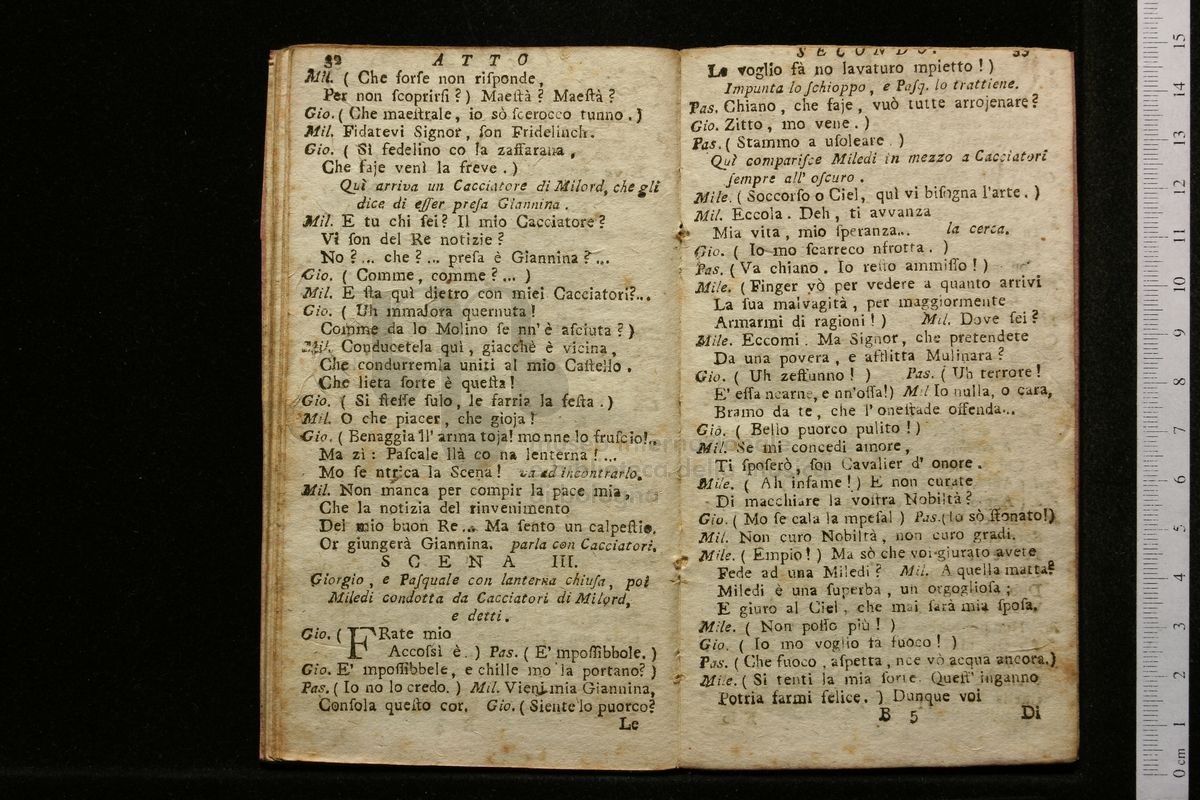 32 ATTO
Mil. ( Che forſe non riſponde,
Per non ſcoprirſi ? ) Maeſtà ? Maeſtà ?
Gio. ( Che maeſtrale, io sò ſcerocco tunno. )
Mil. Fidatevi Signor, ſon Fridelinch.
Gio. ( Si fedelino co la zaffarana,
Che faje venì la freve. )
Quì arriva un Cacciatore di Milord, che gli
dice di eſſer preſa Giannina.
Mil. E tu chi ſei? Il mio Cacciatore?
Vi ſon del Re notizie?
No ? ... che ? ... preſa è Giannina ? ...
Gio. ( Comme, comme ? ... )
Mil. E ſta quì dietro con miei Cacciatori?...
Gio. ( Uh mmalora quernuta!
Comme da lo Molino ſe nn'è aſciuta ? )
Mil. Conducetela quì, giacchè è vicina,
Che condurremla uniti al mio Caſtello.
Che lieta ſorte è queſta!
Gio. ( Si ſteſſe ſulo, le farria la feſta. )
Mil. O che piacer, che gioja!
Gio. ( Benaggia ll' arma toja! mo nne lo fruſcio!..
Ma zì : Paſcale llà co na lenterna ! ...
Mo ſe ntrica la Scena! va ad incontrarlo.
Mil. Non manca per compir la pace mia,
Che la notizia del rinvenimento
Del mio buon Re... Ma ſento un calpeſtio.
Or giungerà Giannina. parla con Cacciatori.
SCENA III.
Giorgio, e Paſquale con lanterna chiuſa, poi
Miledi condotta da Cacciatori di Milord,
e detti.
Gio. ( FRate mio
Accoſsì è. ) Pas. ( E' mpoſſibbole. )
Gio. E' mpoſſibbele, e chille mo la portano? )
Pas. ( Io no lo credo. ) Mil. Vieni mia Giannina,
Conſola queſto cor. Gio. ( Siente lo puorco?
Le
SECONDO. 33
Le voglio fà no lavaturo mpietto ! )
Impunta lo ſchioppo, e Paſq. lo trattiene.
Pas. Chiano, che faje, vuò tutte arrojenare?
Gio. Zitto, mo vene. )
Pas. ( Stammo a uſoleare. )
Quì compariſce Miledi in mezzo a Cacciatori
ſempre all' oſcuro.
Mile. ( Soccorſo o Ciel, quì vi biſogna l'arte. )
Mil. Eccola. Deh, ti avvanza
Mia vita, mio ſperanza... la cerca.
Gio. ( Io mo ſcarreco nfrotta. )
Pas. ( Va chiano. Io reſto ammiſſo ! )
Mile. ( Finger vò per vedere a quanto arrivi
La ſua malvagità, per maggiormente
Armarmi di ragioni ! ) Mil. Dove ſei?
Mile. Eccomi. Ma Signor, che pretendete
Da una povera, e afflitta Mulinara ?
Gio. ( Uh zeffunno ! ) Pas. ( Uh terrore!
E' eſſa ncarne, e nn'oſſa!) Mil Io nulla, o cara,
Bramo da te, che l'oneſtade offenda...
Gio. ( Bello puorco pulito ! )
Mil. Se mi concedi amore,
Ti ſpoſerò, ſon Cavalier d' onore.
Mile. ( Ah infame ! ) E non curate
Di macchiare la voſtra Nobiltà?
Gio. ( Mo ſe cala la mpeſa! ) Pas.(Io sò ſtonato!)
Mil. Non curo Nobiltà, non curo gradi.
Mile. ( Empio! ) Ma sò che voi giurato avete
Fede ad una Miledi ? Mil. A quella matta?
Miledi è una ſuperba, un orgoglioſa ;
E giuro al Ciel, che mai ſarà mia ſpoſa.
Mile. ( Non poſſo più ! )
Gio. ( Io mo voglio fa fuoco ! )
Pas. ( Che fuoco, aſpetta, nce vò acqua ancora.)
Mile. ( Si tenti la mia ſorte. Queſt' inganno
Potria farmi felice. ) Dunque voi
B 5 Di